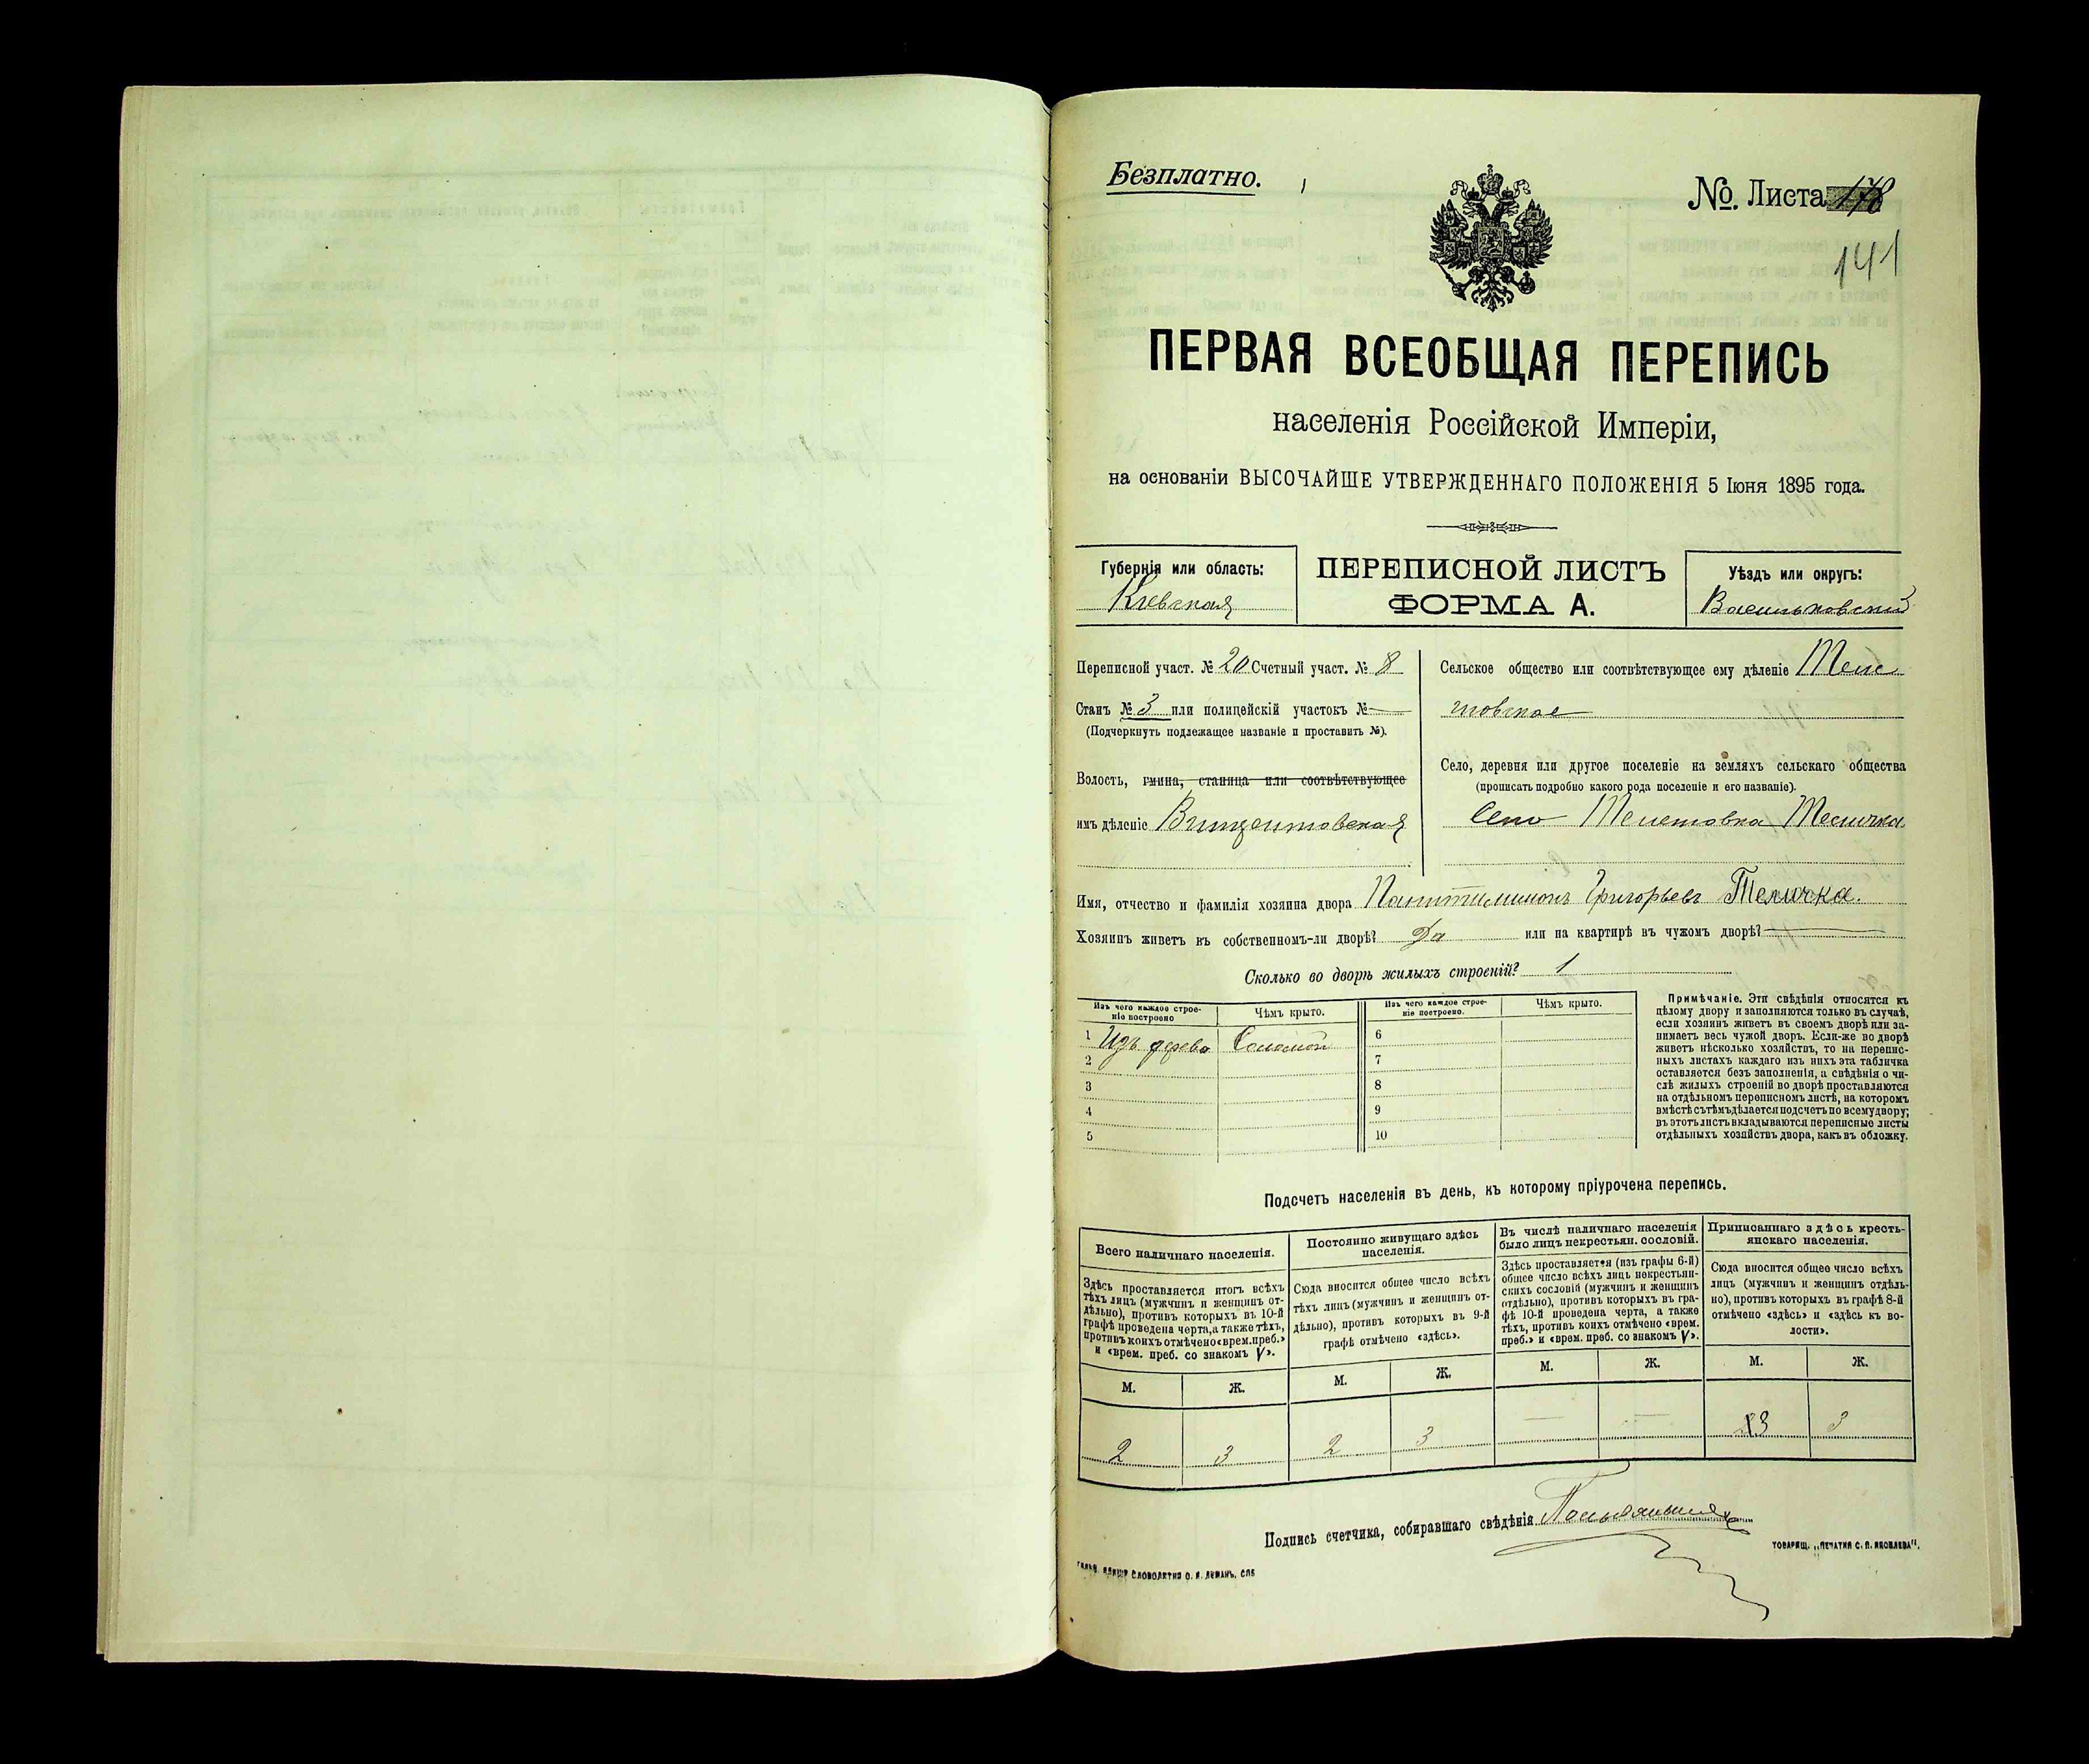 Безплатно.
№. Листа 178
141
ПЕРВАЯ ВСЕОБЩАЯ ПЕРЕПИСЬ
населенія Россійской Имперіи,
на основаніи ВЫСОЧАЙШЕ УТВЕРЖДЕННАГО ПОЛОЖЕНІЯ 5 Іюня 1895 года.
Губернія или область:
Кіевская
ПЕРЕПИСНОЙ ЛИСТЪ
ФОРМА А.
Уѣздъ или округъ:
Васильковскій
Переписной участ. № 20 Счетный участ. № 8
Станъ № 3 или полицейскій участокъ № —
(Подчеркнуть подлежащее названіе и проставить №).
Волость, гмина, станица или соотвѣтствующее
имъ дѣленіе Винцентовская
Сельское общество или соотвѣтствующее ему дѣленіе
Село, деревня или другое поселеніе на земляхъ сельскаго общества
(прописать подробно какого рода поселеніе и его названіе).
Село
Имя, отчество и фамилія хозяина двора Григорьевъ Теличка.
Хозяинъ живетъ въ собственномъ-ли дворѣ? Да или на квартирѣ въ чужомъ дворѣ? —
Сколько во дворѣ жилыхъ строеній? 1
Изъ чего каждое строе-
ніе построено
Чѣмъ крыто.
1 Изъ дерева Соломой
2
3
4
5
Изъ чего каждое строе-
ніе построено.
Чѣмъ крыто.
6
7
8
9
10
Примѣчаніе. Эти свѣдѣнія относятся къ
цѣлому двору и заполняются только въ случаѣ,
если хозяинъ живетъ въ своемъ дворѣ или за-
нимаетъ весь чужой дворъ. Если-же во дворѣ
живетъ нѣсколько хозяйствъ, то на перепис-
ныхъ листахъ каждаго изъ нихъ эта табличка
оставляется безъ заполненія, а свѣдѣнія о чи-
слѣ жилыхъ строеній во дворѣ проставляются
на отдѣльномъ переписномъ листѣ, на которомъ
вмѣстѣ съ тѣмъ дѣлается подсчетъ по всему двору;
въ этотъ листъ вкладываются переписные листы
отдѣльныхъ хозяйствъ двора, какъ въ обложку.
Подсчетъ населенія въ день, къ которому пріурочена перепись.
Всего наличнаго населенія.
Здѣсь проставляется итогъ всѣхъ
тѣхъ лицъ (мужчинъ и женщинъ от-
дѣльно), противъ которыхъ въ 10-й
графѣ проведена черта, а также тѣхъ,
противъ коихъ отмѣчено «врем. преб.»
и «врем. преб. со знакомъ V».
М. Ж.
2 3
Постоянно живущаго здѣсь
населенія.
Сюда вносится общее число всѣхъ
тѣхъ лицъ (мужчинъ и женщинъ от-
дѣльно), противъ которыхъ въ 9-й
графѣ отмѣчено «здѣсь».
М. Ж.
2 3
Въ числѣ наличнаго населенія
было лицъ некрестьян. сословій.
Здѣсь проставляется (изъ графы 6-й)
общее число всѣхъ лицъ некрестьян-
скихъ сословій (мужчинъ и женщинъ
отдѣльно), противъ которыхъ въ гра-
фѣ 10-й проведена черта, а также
тѣхъ, противъ коихъ отмѣчено «врем.
преб.» и «врем. преб. со знакомъ V».
М. Ж.
— —
Приписаннаго здѣсь кресть-
янскаго населенія.
Сюда вносится общее число всѣхъ
лицъ (мужчинъ и женщинъ отдѣль-
но), противъ которыхъ въ графѣ 8-й
отмѣчено «здѣсь» и «здѣсь къ во-
лости».
М. Ж.
3 3
Подпись счетчика, собиравшаго свѣдѣнія
ТОВАРИЩ. „ПЕЧАТНЯ С. П. ЯКОВЛЕВА".
СЛОВОЛИТНЯ О. И. ЛЕМАНЪ, СПБ